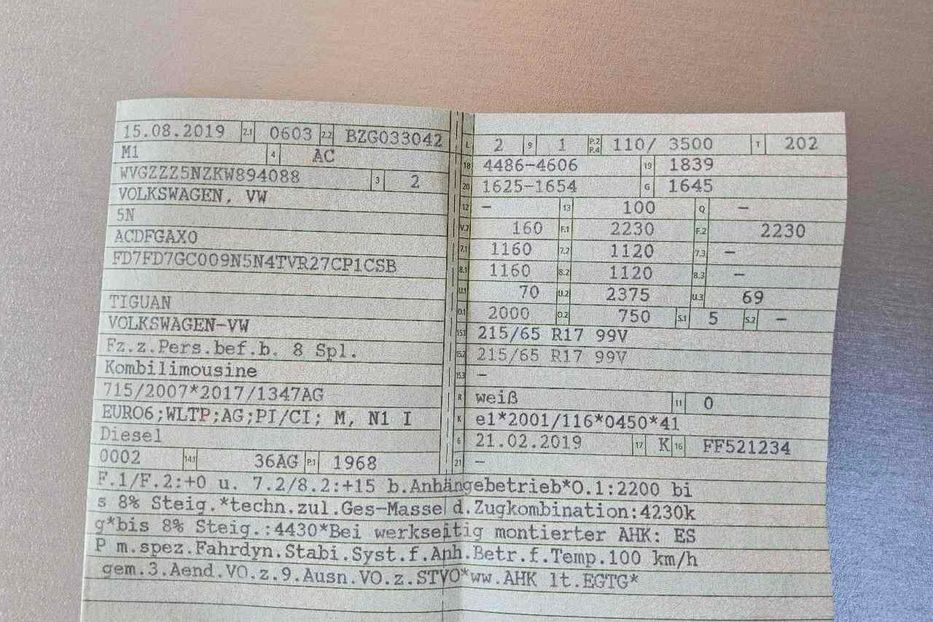 15.08.2019 2.1 0603 2.2 BZG033042
M1 4 AC
WVGZZZ5NZKW894088 3 2
VOLKSWAGEN, VW
5N
ACDFGAX0
FD7FD7GC009N5N4TVR27CP1CSB
TIGUAN
VOLKSWAGEN-VW
Fz.z.Pers.bef.b. 8 Spl.
Kombilimousine
715/2007*2017/1347AG
EURO6;WLTP;AG;PI/CI; M, N1 I
Diesel
0002 14.1 36AG P.1 1968
L 2 9 1 P.2 P.4 110/ 3500 T 202
18 4486-4606 19 1839
20 1625-1654 G 1645
12 - 13 100 Q -
V.7 160 F.1 2230 F.2 2230
7.1 1160 7.2 1120 7.3 -
8.1 1160 8.2 1120 8.3 -
U.1 70 U.2 2375 U.3 69
O.1 2000 O.2 750 S.1 5 S.2 -
15.1 215/65 R17 99V
15.2 215/65 R17 99V
15.3 -
R weiß 11 0
K e1*2001/116*0450*41
6 21.02.2019 17 K 16 FF521234
21 -
F.1/F.2:+0 u. 7.2/8.2:+15 b.Anhängebetrieb*O.1:2200 bi
s 8% Steig.*techn.zul.Ges-Masse d.Zugkombination:4230k
g*bis 8% Steig.:4430*Bei werkseitig montierter AHK: ES
P m.spez.Fahrdyn.Stabi.Syst.f.Anh.Betr.f.Temp.100 km/h
gem.3.Aend.VO.z.9.Ausn.VO.z.STVO*ww.AHK lt.EGTG*